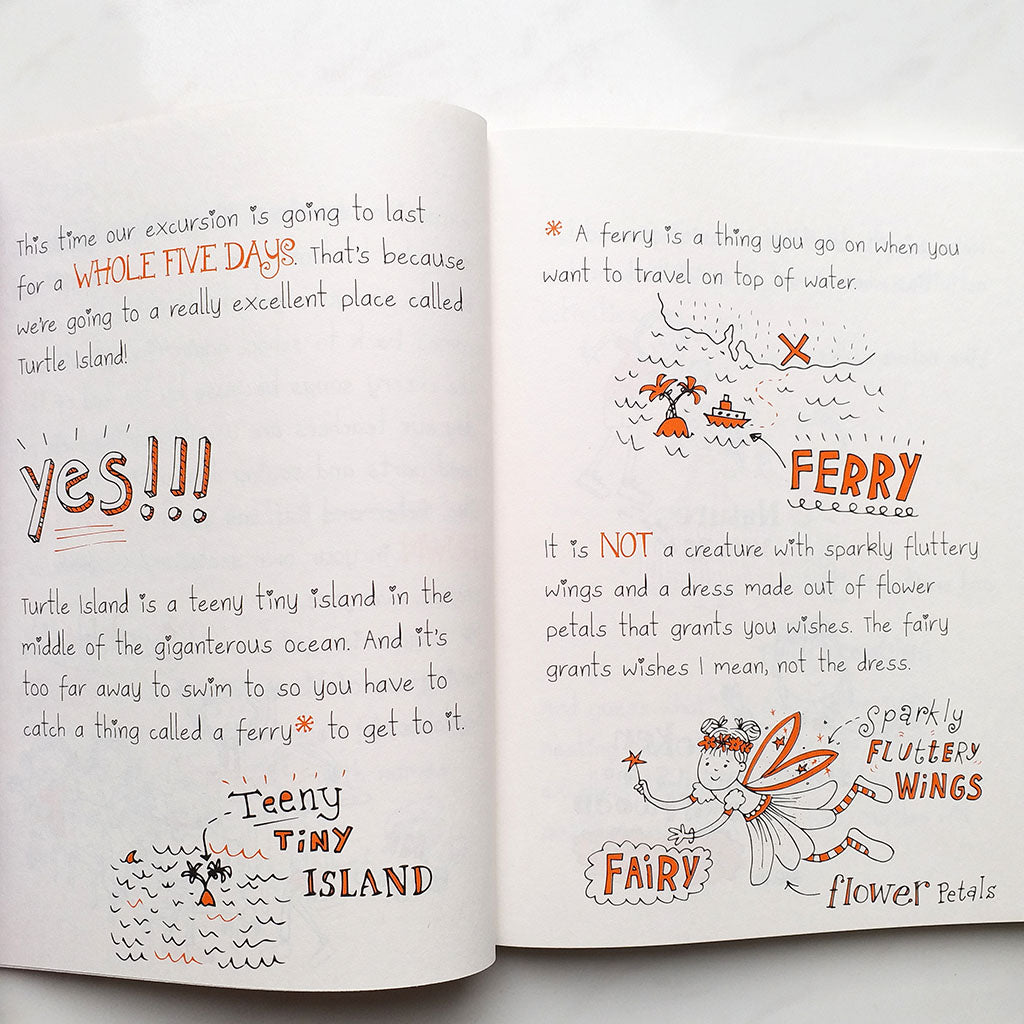 This time our excursion is going to last
for a WHOLE FIVE DAYS. That's because
we're going to a really excellent place called
Turtle Island!
yes!!!
Turtle Island is a teeny tiny island in the
middle of the giganterous ocean. And it's
too far away to swim to so you have to
catch a thing called a ferry* to get to it.
Teeny
TINY
ISLAND
* A ferry is a thing you go on when you
want to travel on top of water.
X
FERRY
It is NOT a creature with sparkly fluttery
wings and a dress made out of flower
petals that grants you wishes. The fairy
grants wishes I mean, not the dress.
Sparkly
FLUTTERY
WINGS
FAIRY
flower Petals